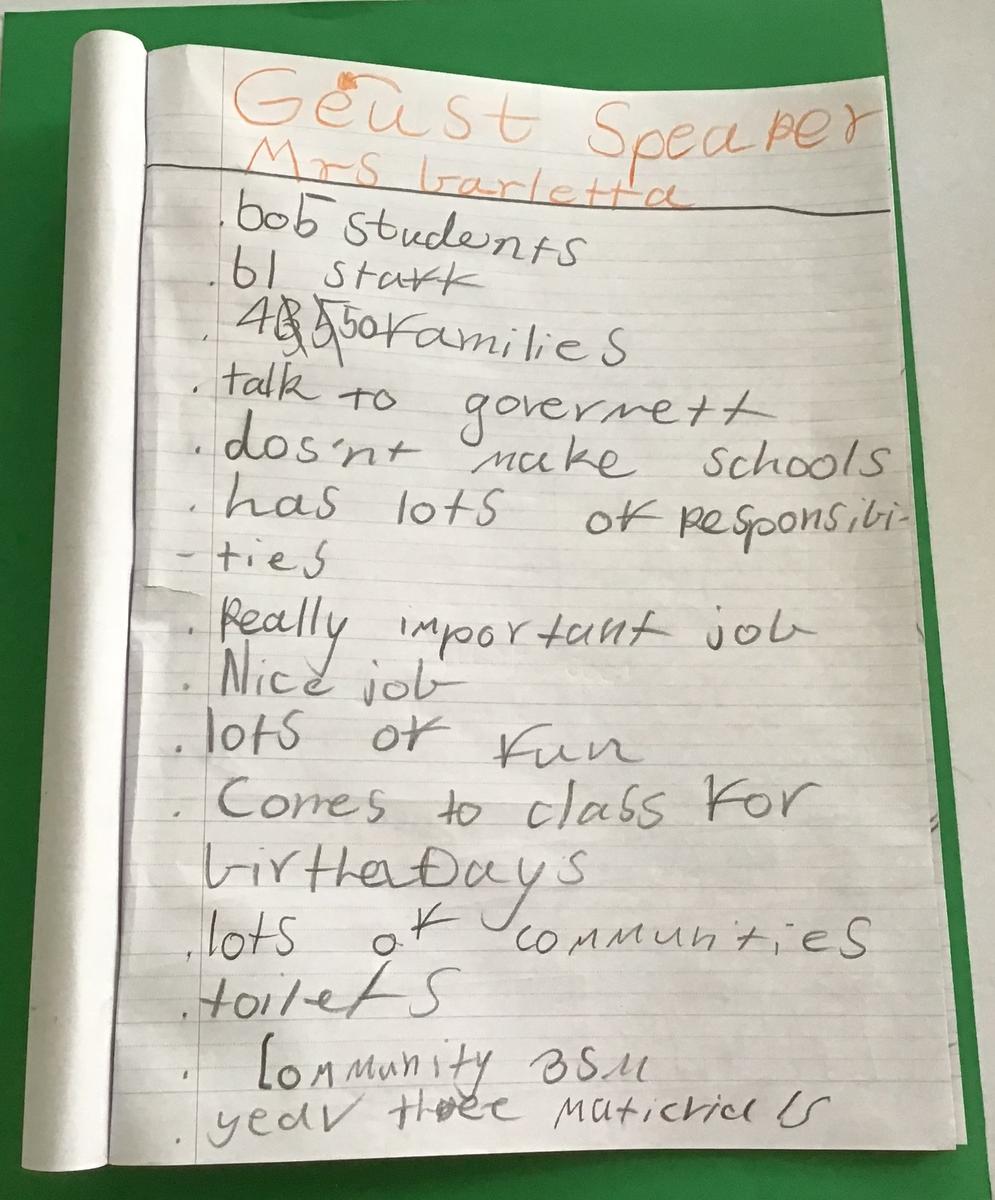 Geust Speaker
Mrs barletta
. 605 students
. 61 staff
. 450 families
. talk to govermett
. dos'nt make schools
. has lots of responsibi-
- ties
. Really important job
. Nice job
. lots of fun
. Comes to class for
birtheDays
. lots of communities
. toilets
. Community 3SM
. year three maticrials